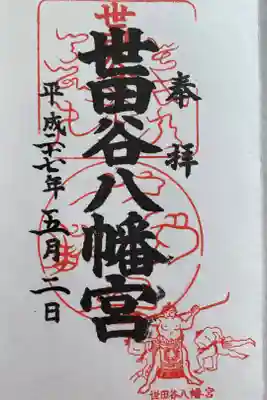 奉拝
世田谷八幡宮
平成二十七年五月二日
世田谷八幡宮